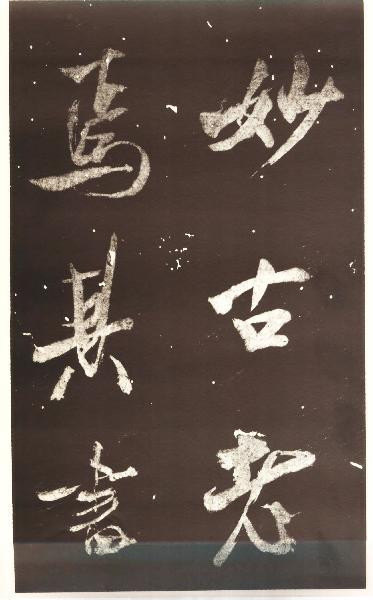 妙古老
焉其